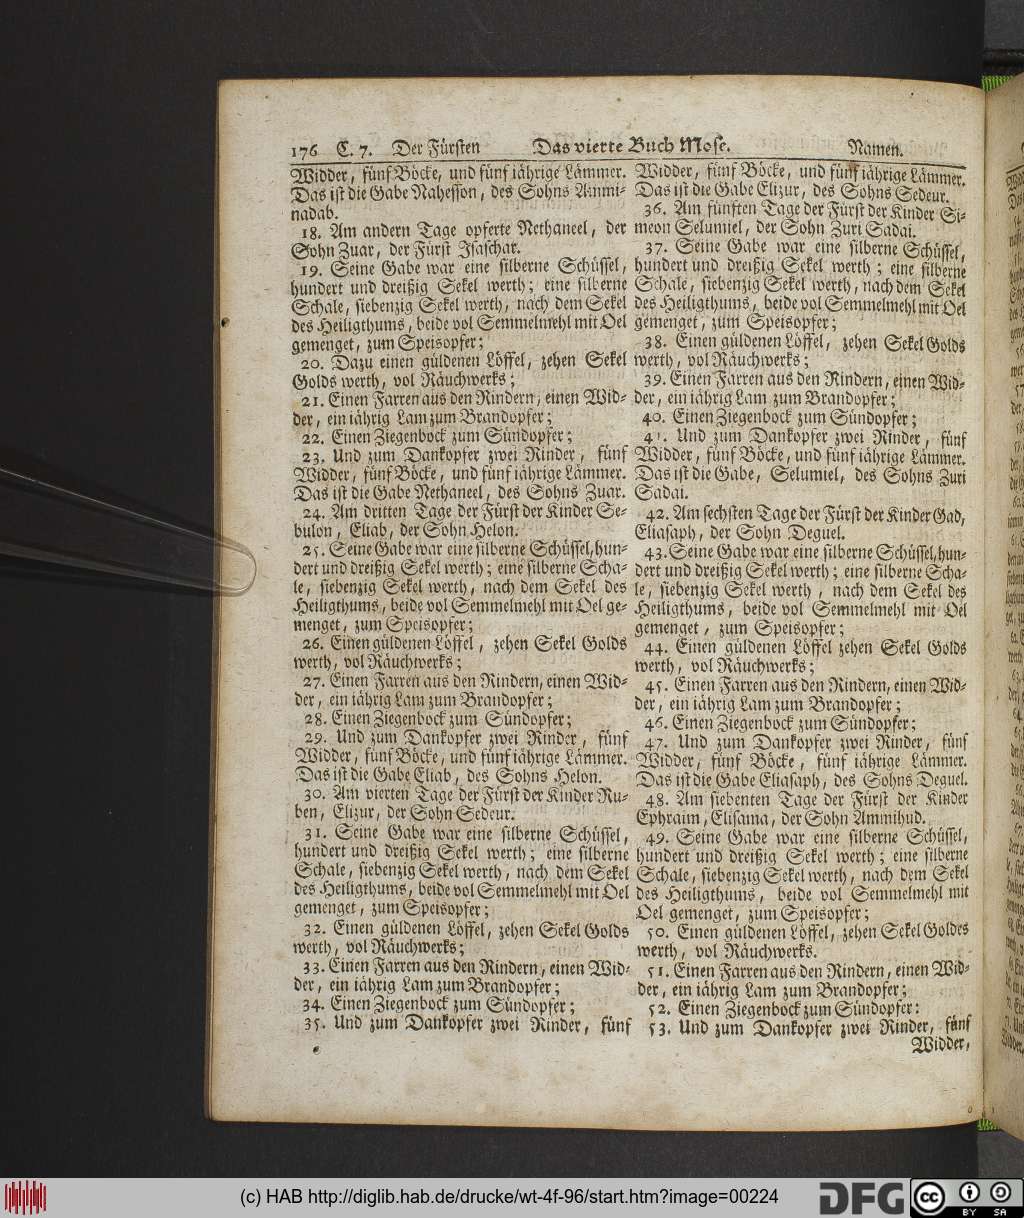 176 C. 7. Der Fürsten Das vierte Buch Mose. Namen.
Widder, fünf Böcke, und fünf jährige Lämmer.
Das ist die Gabe Nahesson, des Sohns Ammi-
nadab.
18. Am andern Tage opferte Nethaneel, der
Sohn Zuar, der Fürst Isaschar.
19. Seine Gabe war eine silberne Schüssel,
hundert und dreißig Sekel werth; eine silberne
Schale, siebenzig Sekel werth, nach dem Sekel
des Heiligthums, beide vol Semmelmehl mit Oel
gemenget, zum Speisopfer;
20. Dazu einen güldenen Löffel, zehen Sekel
Golds werth, vol Räuchwerks;
21. Einen Farren aus den Rindern, einen Wid-
der, ein jährig Lam zum Brandopfer;
22. Einen Ziegenbock zum Sündopfer;
23. Und zum Dankopfer zwei Rinder, fünf
Widder, fünf Böcke, und fünf jährige Lämmer.
Das ist die Gabe Nethaneel, des Sohns Zuar.
24. Am dritten Tage der Fürst der Kinder Se-
bulon, Eliab, der Sohn Helon.
25. Seine Gabe war eine silberne Schüssel, hun-
dert und dreißig Sekel werth; eine silberne Scha-
le, siebenzig Sekel werth, nach dem Sekel des
Heiligthums, beide vol Semmelmehl mit Oel ge-
menget, zum Speisopfer;
26. Einen güldenen Löffel, zehen Sekel Golds
werth, vol Räuchwerks;
27. Einen Farren aus den Rindern, einen Wid-
der, ein jährig Lam zum Brandopfer;
28. Einen Ziegenbock zum Sündopfer;
29. Und zum Dankopfer zwei Rinder, fünf
Widder, fünf Böcke, und fünf jährige Lämmer.
Das ist die Gabe Eliab, des Sohns Helon.
30. Am vierten Tage der Fürst der Kinder Ru-
ben, Elizur, der Sohn Sedeur.
31. Seine Gabe war eine silberne Schüssel,
hundert und dreißig Sekel werth; eine silberne
Schale, siebenzig Sekel werth, nach dem Sekel
des Heiligthums, beide vol Semmelmehl mit Oel
gemenget, zum Speisopfer;
32. Einen güldenen Löffel, zehen Sekel Golds
werth, vol Räuchwerks;
33. Einen Farren aus den Rindern, einen Wid-
der, ein jährig Lam zum Brandopfer;
34. Einen Ziegenbock zum Sündopfer;
35. Und zum Dankopfer zwei Rinder, fünf
Widder, fünf Böcke, und fünf jährige Lämmer.
Das ist die Gabe Elizur, des Sohns Sedeur.
36. Am fünften Tage der Fürst der Kinder Si-
meon Selumiel, der Sohn Zuri Sadai.
37. Seine Gabe war eine silberne Schüssel,
hundert und dreißig Sekel werth; eine silberne
Schale, siebenzig Sekel werth, nach dem Sekel
des Heiligthums, beide vol Semmelmehl mit Oel
gemenget, zum Speisopfer;
38. Einen güldenen Löffel, zehen Sekel Golds
werth, vol Räuchwerks;
39. Einen Farren aus den Rindern, einen Wid-
der, ein jährig Lam zum Brandopfer;
40. Einen Ziegenbock zum Sündopfer;
41. Und zum Dankopfer zwei Rinder, fünf
Widder, fünf Böcke, und fünf jährige Lämmer.
Das ist die Gabe, Selumiel, des Sohns Zuri
Sadai.
42. Am sechsten Tage der Fürst der Kinder Gad,
Eliasaph, der Sohn Deguel.
43. Seine Gabe war eine silberne Schüssel, hun-
dert und dreißig Sekel werth; eine silberne Scha-
le, siebenzig Sekel werth, nach dem Sekel des
Heiligthums, beide vol Semmelmehl mit Oel
gemenget, zum Speisopfer;
44. Einen güldenen Löffel zehen Sekel Golds
werth, vol Räuchwerks;
45. Einen Farren aus den Rindern, einen Wid-
der, ein jährig Lam zum Brandopfer;
46. Einen Ziegenbock zum Sündopfer;
47. Und zum Dankopfer zwei Rinder, fünf
Widder, fünf Böcke, fünf jährige Lämmer.
Das ist die Gabe Eliasaph, des Sohns Deguel.
48. Am siebenten Tage der Fürst der Kinder
Ephraim, Elisama, der Sohn Ammihud.
49. Seine Gabe war eine silberne Schüssel,
hundert und dreißig Sekel werth; eine silberne
Schale, siebenzig Sekel werth, nach dem Sekel
des Heiligthums, beide vol Semmelmehl mit
Oel gemenget, zum Speisopfer;
50. Einen güldenen Löffel, zehen Sekel Goldes
werth, vol Räuchwerks.
51. Einen Farren aus den Rindern, einen Wid-
der, ein jährig Lam zum Brandopfer;
52. Einen Ziegenbock zum Sündopfer:
53. Und zum Dankopfer zwei Rinder, fünf
Widder,
(c) HAB http://diglib.hab.de/drucke/wt-4f-96/start.htm?image=00224
DFG
cc BY SA